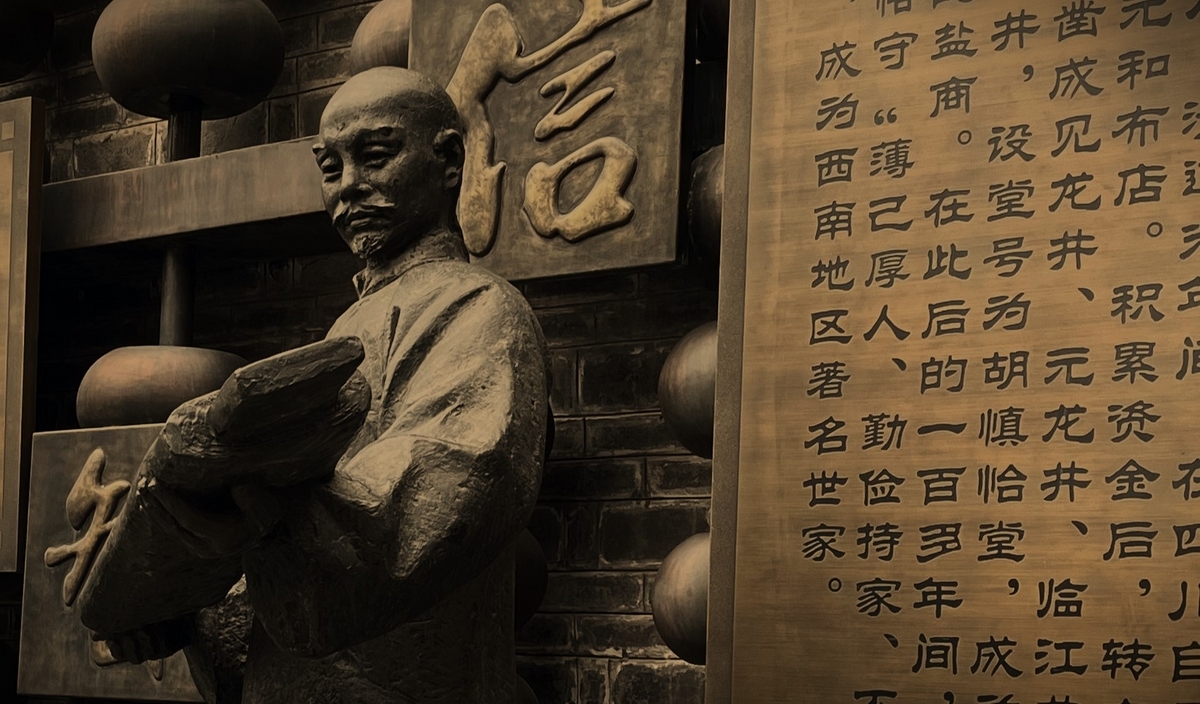 信
年间在四川自
元和布店。积累资金后，转
凿成见龙井、元龙井、临江井
井，设堂号为胡慎怡堂，成
盐商。在此后的一百多年间，
恪守“薄己厚人、勤俭持家、
成为西南地区著名世家。